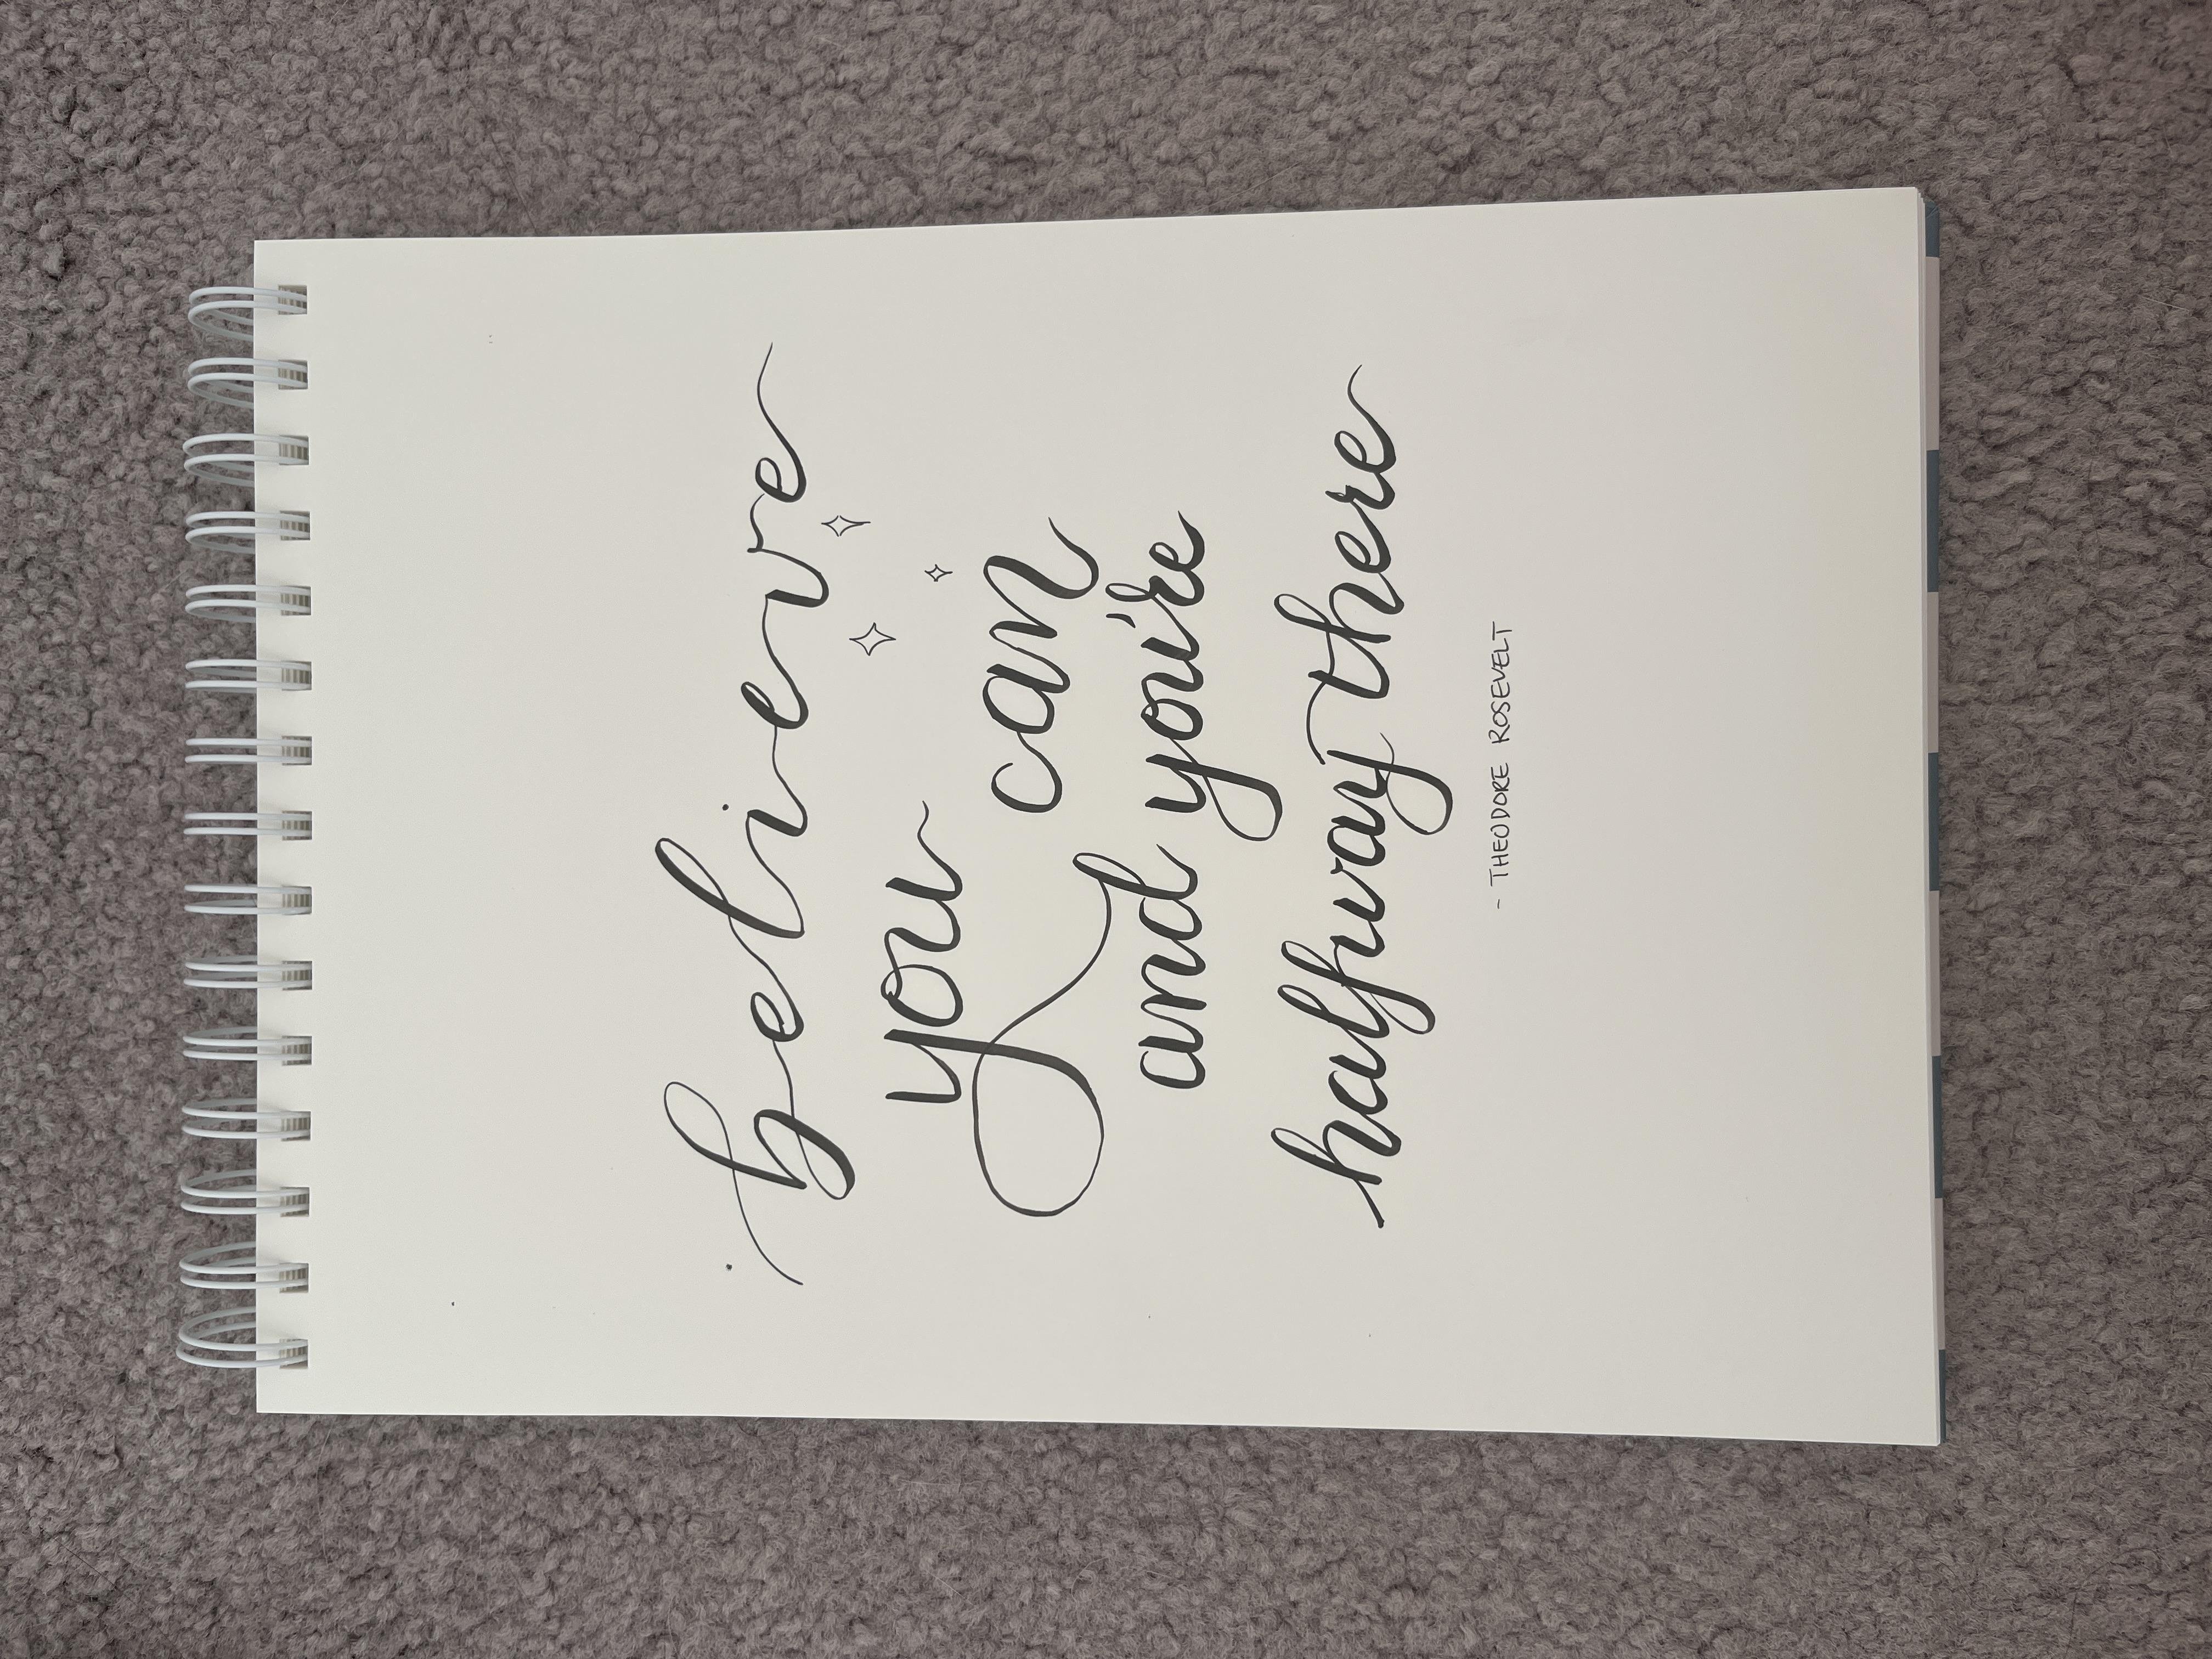 believe
you can
and you're
halfway there
- THEODORE ROSEVELT